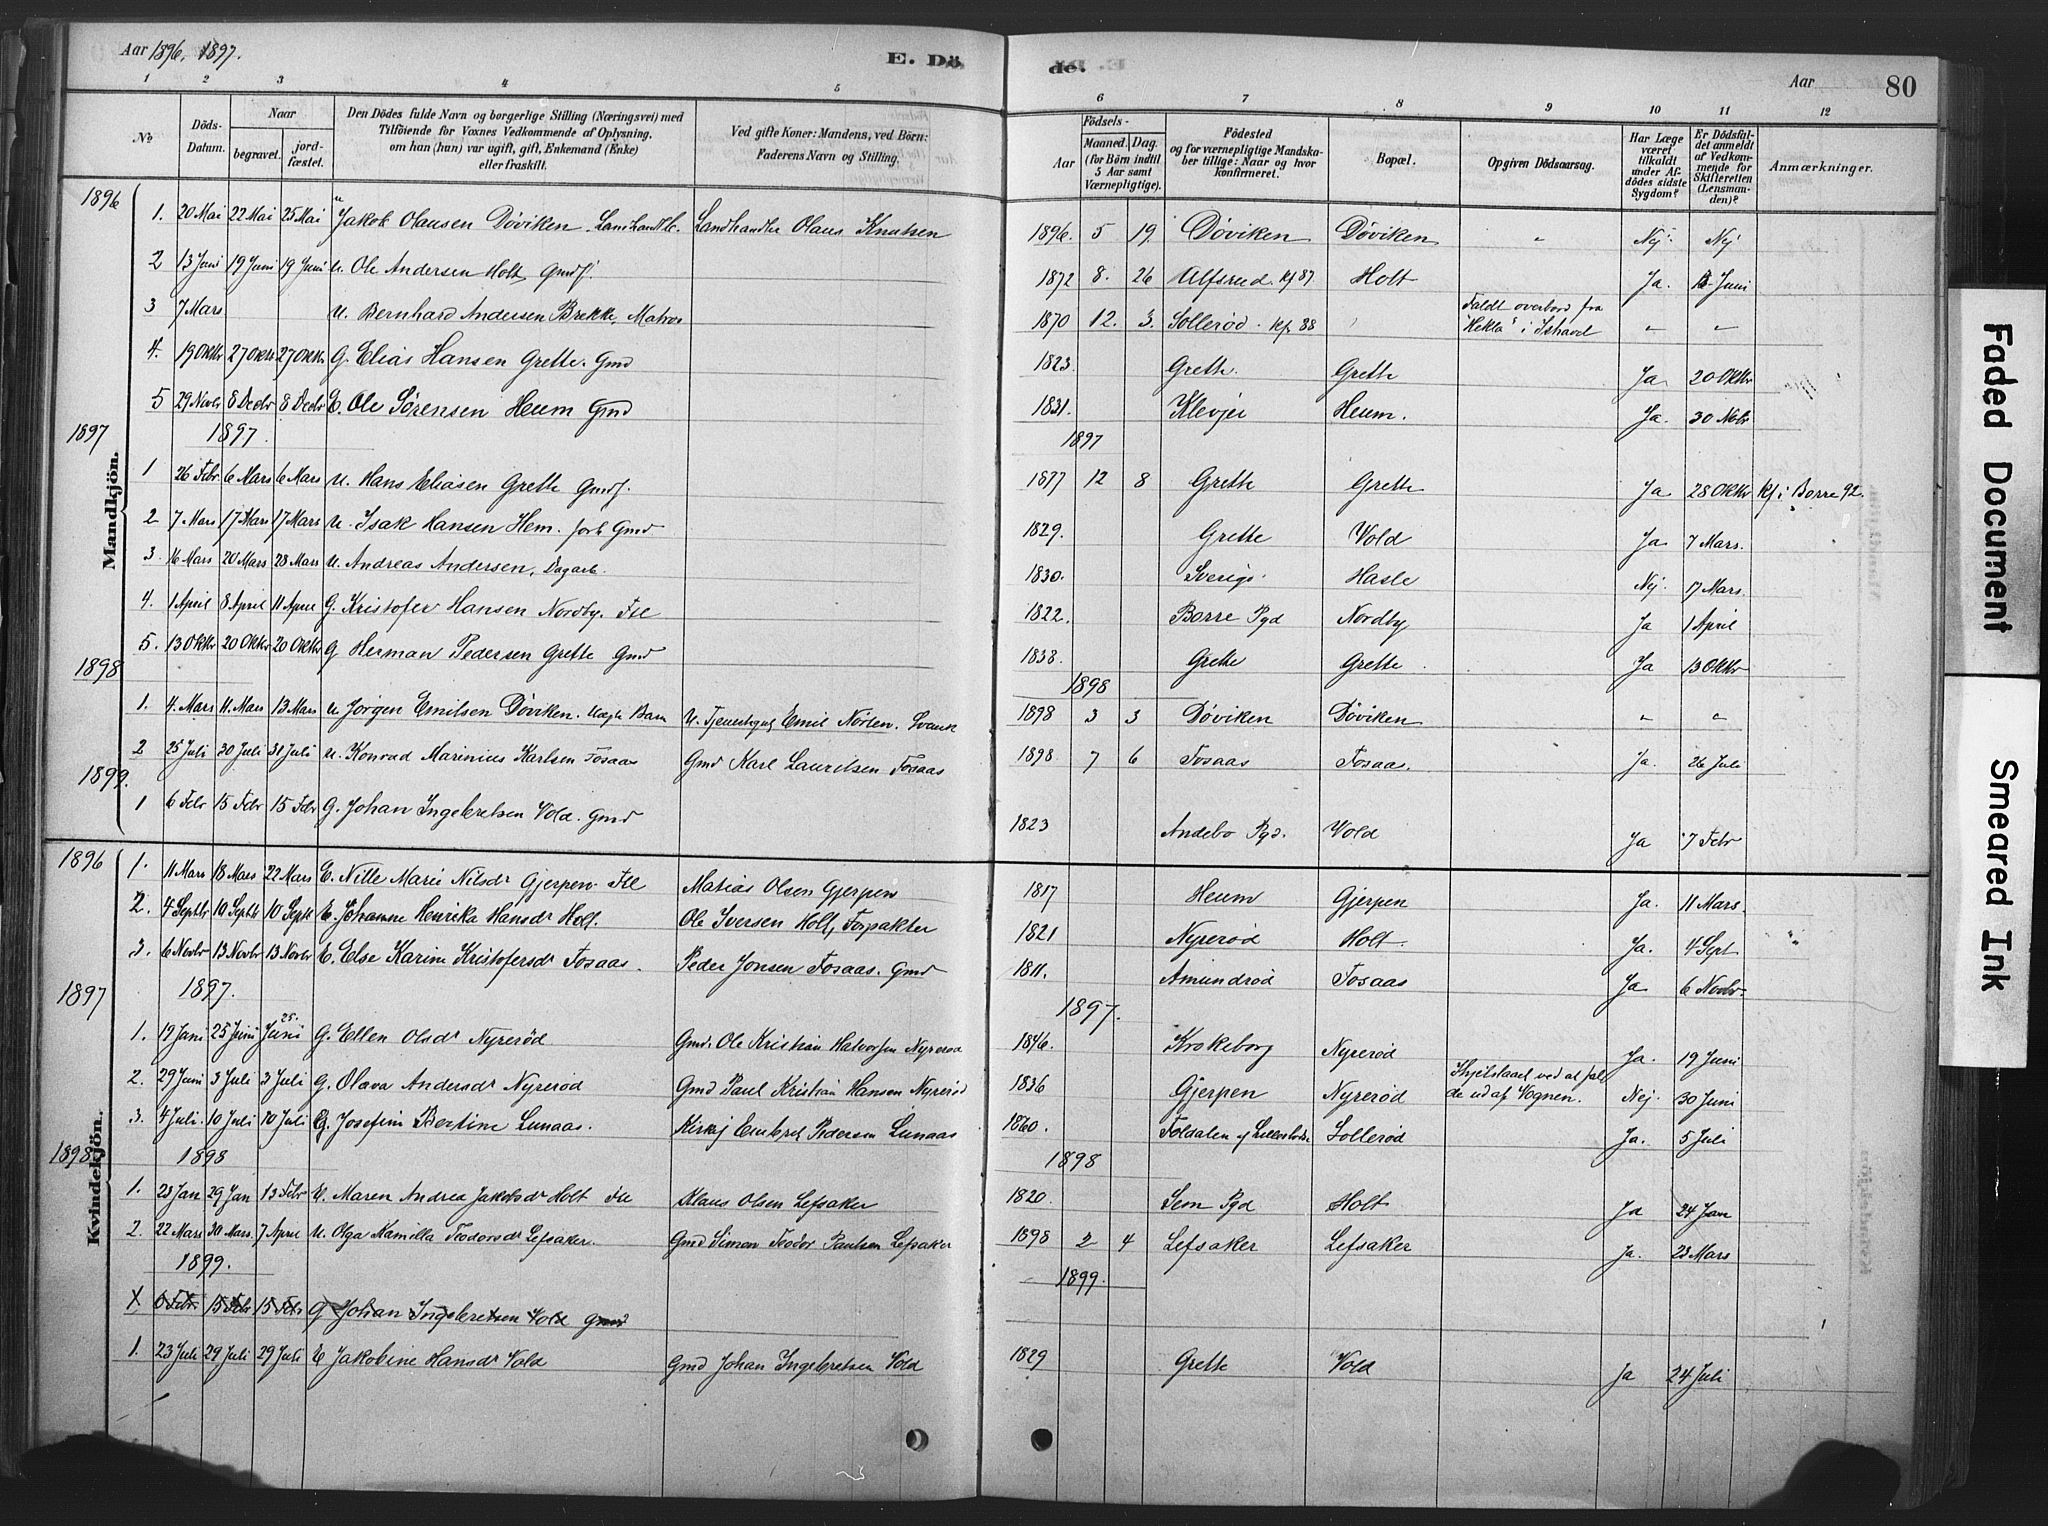 Aar 1896, 1897.
E. Dö
de.
Aar
80
1 2 3 4 5 6 7 8 9 10 11 12
No
Döds-Datum.
Naar
begravet.
jordfæstet.
Den Dödes fulde Navn og borgerlige Stilling (Næringsvei) med Tilföiende for Voxnes Vedkommende af Oplysning, om han (hun) var ugift, gift, Enkemand (Enke) eller fraskilt.
Ved gifte Koner: Mandens, ved Börn: Faderens Navn og Stilling.
Födsels-
Aar
Maaned. Dag.
(for Börn indtil 5 Aar samt Værnepligtige).
Födested
og for værnepligtige Mandskaber tillige: Naar og hvor konfirmeret.
Bopæl.
Opgiven Dödsaarsag.
Har Læge været tilkaldt under Afdödes sidste Sygdom?
Er Dödsfaldet anmeldt af Vedkommende for Skifteretten (Lensmanden)?
Anmærkninger.
Mandkjön.
1896
1. 20 Mai 22 Mai 25 Mai u Jakob Olausen Döviken. Landhandler Olaus Knutsen 1896. 5 19. Döviken Döviken " Nej. Nej
2 13 Juni 19 Juni 19 Juni U. Ole Andersen Holt, Gmdf. 1872 8. 26 Ulfsrud. Kf 87 Holt Ja. Juni
3 7 Mars U. Bernhard Andersen Brekke, Matros 1870 12. 3. Sollerød. Kf. 88 Faldt overbord fra "Hekla" i Ishavet " "
4. 19 Oktbr 27 Oktbr 27 Oktbr G. Elias Hansen Grette. Gmd 1823. Grette. Grette Ja 20 Oktbr
5 29 Novbr 8 Decbr 8 Decbr E. Ole Sørensen Heum Gmd 1831. Klevjer Heum. Ja. 30 Nobr
1897 1897. 1897
1 26 Febr 6 Mars 6 Mars U. Hans Eliasen Grette Gmdf. 1877 12 8 Grette Grette Ja 28 Oktbr Kf i Borre 92.
2 7 Mars 17 Mars 17 Mars U. Isak Hansen Hem. Gmd 1829. Grette Vold Ja 7 Mars.
3. 16 Mars 20 Mars 28 Mars U. Andreas Andersen, Dagarb. 1830. Sverige. Hasle Nej. 17 Mars.
4. 1 April 8 April 11 April G. Kristofer Hansen Nordby. Fll 1822. Borre Pgd Nordby Ja 1 April
5. 13 Oktbr 20 Oktbr 20 Oktbr G Herman Pedersen Grette Gmd 1838. Grette Grette. Ja. 13 Oktbr
1898 1898
1. 4. Mars 11. Mars 13 Mars U Jørgen Emilsen Döviken. Uægte Barn U. Emil Nörlen. Svensk 1898 3 3 Döviken Döviken " "
2 25 Juli 30 Juli 31 Juli U. Konrad Marinius Karlsen Fosaas Gmd Karl Lauritsen Fosaas 1898 7 6 Fosaas Fosaas. Ja. 26 Juli
1899.
1 6 Febr 15 Febr 15 Febr G. Johan Ingebretsen Vold. Gmd 1823 Andebo Pgd. Vold Ja 7 Febr
Kvindekjön.
1896
1. 11 Mars 18 Mars 22 Mars E. Nille Marie Nilsdr Gjerpen. Fll Matias Olsen Gjerpen 1817 Heum Gjerpen Ja. 11 Mars.
2. 4 Septbr 10 Septbr 10 Septbr E. Johanne Henrika Hansdr Holt. Ole Iversen Holt, Forpakter 1821 Nyrerød Holt. Ja. 4 Sept
3. 6 Novbr 13 Novbr 13 Novbr E. Else Karine Kristofersdr Fosaas. Peder Jonsen Fosaas. Gmd 1811. Amundrød Fosaas Ja 6 Novbr.
1897 1897. 1897.
1. 19 Juni 25 Juni 25. Juni G. Ellen Olsdr Nyrerød Gmd. Ole Kristian Halvorsen Nyrerød 1846. Krokeborg Nyrerød Ja. 19 Juni
2. 29 Juni 3 Juli 3 Juli G. Olava Andersdr Nyrerød Gmd Paul Kristian Hansen Nyrerød 1836 Gjerpen Nyrerød Ihjelslaaet ved at falde ud af Vognen. Nej. 30 Juni
3. 4 Juli. 10 Juli 10 Juli G. Josefine Bertine Lunaas. Embret Pedersen Lunaas 1860. Foldalen Sollerød Ja. 5 Juli
1898 1898 1898
1. 23 Jan 29 Jan 13 Febr E. Maren Andrea Jakobsdr Holt Fll Klaus Olsen Lefsaker 1820. Sem Pgd Holt Ja 24 Jan
2. 22 Mars 30 Mars. 7 April U. Olga Kamilla Teodorsdr Lefsaker. Gmd Simon Teodor Paulsen Lefsaker 1898 2 4 Lefsaker Lefsaker Ja. 23 Mars
1899. 1899.
1 6 Febr 15 Febr 15 Febr G Johan Ingebretsen Vold Gmd
1. 23 Juli 29 Juli 29 Juli E Jakobine Hansdr Vold Gmd Johan Ingebretsen Vold 1829 Grette Vold Ja 24 Juli
Faded Document
Smeared Ink